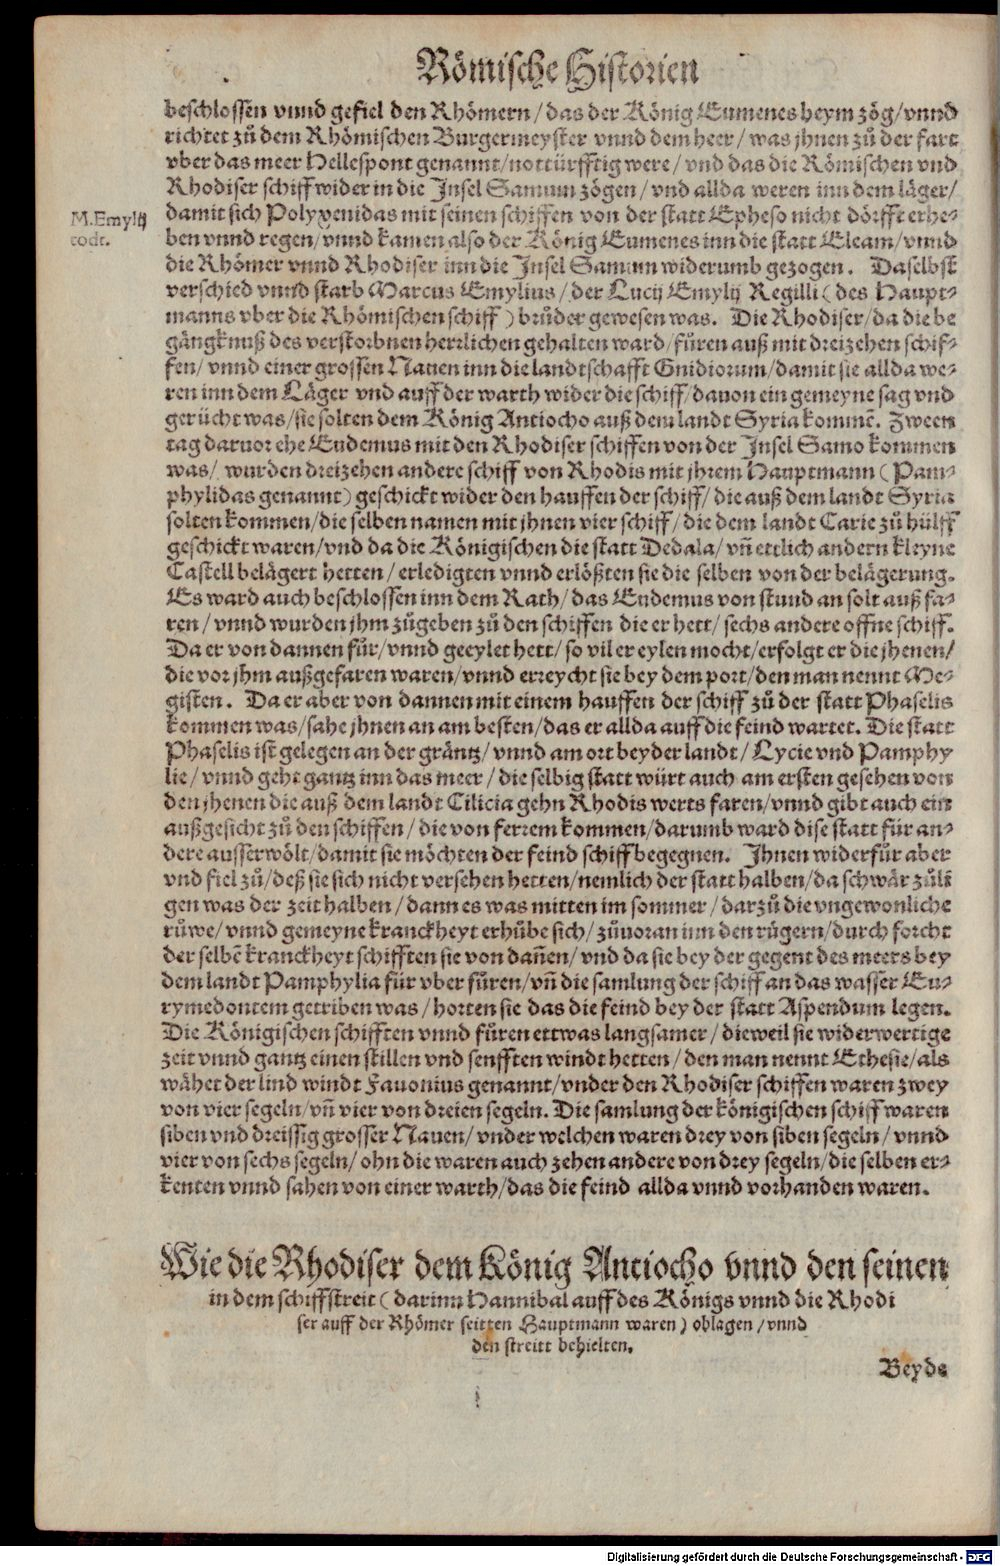 Römische Historien
beschlossen vnnd gefiel den Rhömern / das der König Eumenes heym zög / vnnd
richtet zů dem Rhömischen Burgermeyster vnnd dem heer / was jhnen zů der fart
vber das meer Hellespont genannt / nottürfftig were / vnd das die Römischen vnd
Rhodiser schiff wider in die Insel Samum zögen / vnd allda weren inn dem läger /
M. Emylij
todt.
damit sich Polyxenidas mit seinen schiffen von der statt Epheso nicht dörfft erhe-
ben vnnd regen / vnnd kamen also der König Eumenes inn die statt Eleam / vnnd
die Rhömer vnnd Rhodiser inn die Insel Samum widerumb gezogen. Daselbst
verschied vnnd starb Marcus Emylius / der Lucij Emylij Regilli ( des Haupt-
manns vber die Rhömischen schiff ) brůder gewesen was. Die Rhodiser / da die be
gängknuß des verstorbnen herrlichen gehalten ward / fůren auß mit dreizehen schif-
fen / vnnd einer grossen Nauen inn die landtschafft Gnidiorum / damit sie allda we-
ren inn dem Läger vnd auff der warth wider die schiff / dauon ein gemeyne sag vnd
gerücht was / sie solten dem König Antiocho auß dem landt Syria kommē. Zween
tag daruor ehe Eudemus mit den Rhodiser schiffen von der Insel Samo kommen
was / wurden dreizehen andere schiff von Rhodis mit jhrem Hauptmann ( Pam-
phylidas genannt ) geschickt wider den hauffen der schiff / die auß dem landt Syria
solten kommen / die selben namen mit jhnen vier schiff / die dem landt Carie zů hülff
geschickt waren / vnd da die Königischen die statt Dedala / vñ ettlich andern kleyne
Castell belägert hetten / erledigten vnnd erlößten sie die selben von der belägerung.
Es ward auch beschlossen inn dem Rath / das Eudemus von stund an solt auß fa-
ren / vnnd wurden jhm zůgeben zů den schiffen die er hett / sechs andere offne schiff.
Da er von dannen fůr / vnnd geeylet hett / so vil er eylen mocht / erfolgt er die jhenen /
die vor jhm außgefaren waren / vnnd erreycht sie bey dem port / den man nennt Me-
gisten. Da er aber von dannen mit einem hauffen der schiff zů der statt Phaselis
kommen was / sahe jhnen an am besten / das er allda auff die feind wartet. Die statt
Phaselis ist gelegen an der gräntz / vnnd am ort beyder landt / Lycie vnd Pamphy
lie / vnnd geht gantz inn das meer / die selbig statt würt auch am ersten gesehen von
den jhenen die auß dem landt Cilicia gehn Rhodis werts faren / vnnd gibt auch ein
außgesicht zů den schiffen / die von ferrem kommen / darumb ward dise statt für an-
dere ausserwölt / damit sie möchten der feind schiff begegnen. Ihnen widerfůr aber
vnd fiel zů / deß sie sich nicht versehen hetten / nemlich der statt halben / da schwär zůlē
gen was der zeit halben / dann es was mitten im sommer / darzů die vngewonliche
rüwe / vnnd gemeyne kranckheyt erhůbe sich / zůuoran inn den rügern / durch forcht
der selbē kranckheyt schifften sie von dañen / vnd da sie bey der gegent des meers bey
dem landt Pamphylia für vber fůren / vñ die samlung der schiff an das wasser Eu-
rymedontem getriben was / horten sie das die feind bey der statt Aspendum legen.
Die Königischen schifften vnnd fůren ettwas langsamer / dieweil sie widerwertige
zeit vnnd gantz einen stillen vnd senfften windt hetten / den man nennt Ethesie / als
wähet der lind windt Fauonius genannt / vnder den Rhodiser schiffen waren zwey
von vier segeln / vñ vier von dreien segeln. Die samlung der königischen schiff waren
siben vnd dreissig grosser Nauen / vnder welchen waren drey von siben segeln / vnnd
vier von sechs segeln / ohn die waren auch zehen andere von drey segeln / die selben er-
kenten vnnd sahen von einer warth / das die feind allda vnnd vorhanden waren.
Wie die Rhodiser dem König Antiocho vnnd den seinen
in dem schiffstreit ( darinn Hannibal auff des Königs vnnd die Rhodi
ser auff der Rhömer seitten Hauptmann waren ) oblagen / vnnd
den streitt behielten.
Beyde
Digitalisierung gefördert durch die Deutsche Forschungsgemeinschaft - DFG